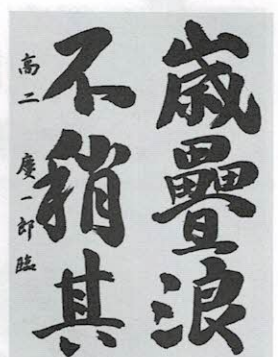 歳疊浪
不稍其
高二 慶一郎臨